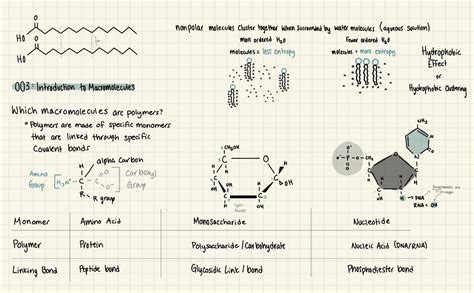 HO
O
HO
O
003: Introduction to Macromolecules
nonpolar molecules cluster together when surrounded by water molecules (aqueous solution)
more ordered H₂O
molecules = less entropy
Fewer ordered H₂O
molecules = more entropy
Hydrophobic
Effect
or
Hydrophobic Clustering
Which macromolecules are polymers?
• Polymers are made of specific monomers
that are linked through specific
Covalent bonds
alpha Carbon
Amino
Group
H₃N
H
C
R
C
O
O
Carboxyl
Group
CH₂OH
O
OH
O
P
O
O
CH₂
O
OH
→ DNA
RNA ← OH
Monomer
Amino Acid
Monosaccharide
Nucleotide
Polymer
Protein
Polysaccharide / Carbohydrate
Nucleic Acid (DNA/RNA)
Linking Bond
Peptide bond
Glycosidic Link / bond
Phosphodiester bond